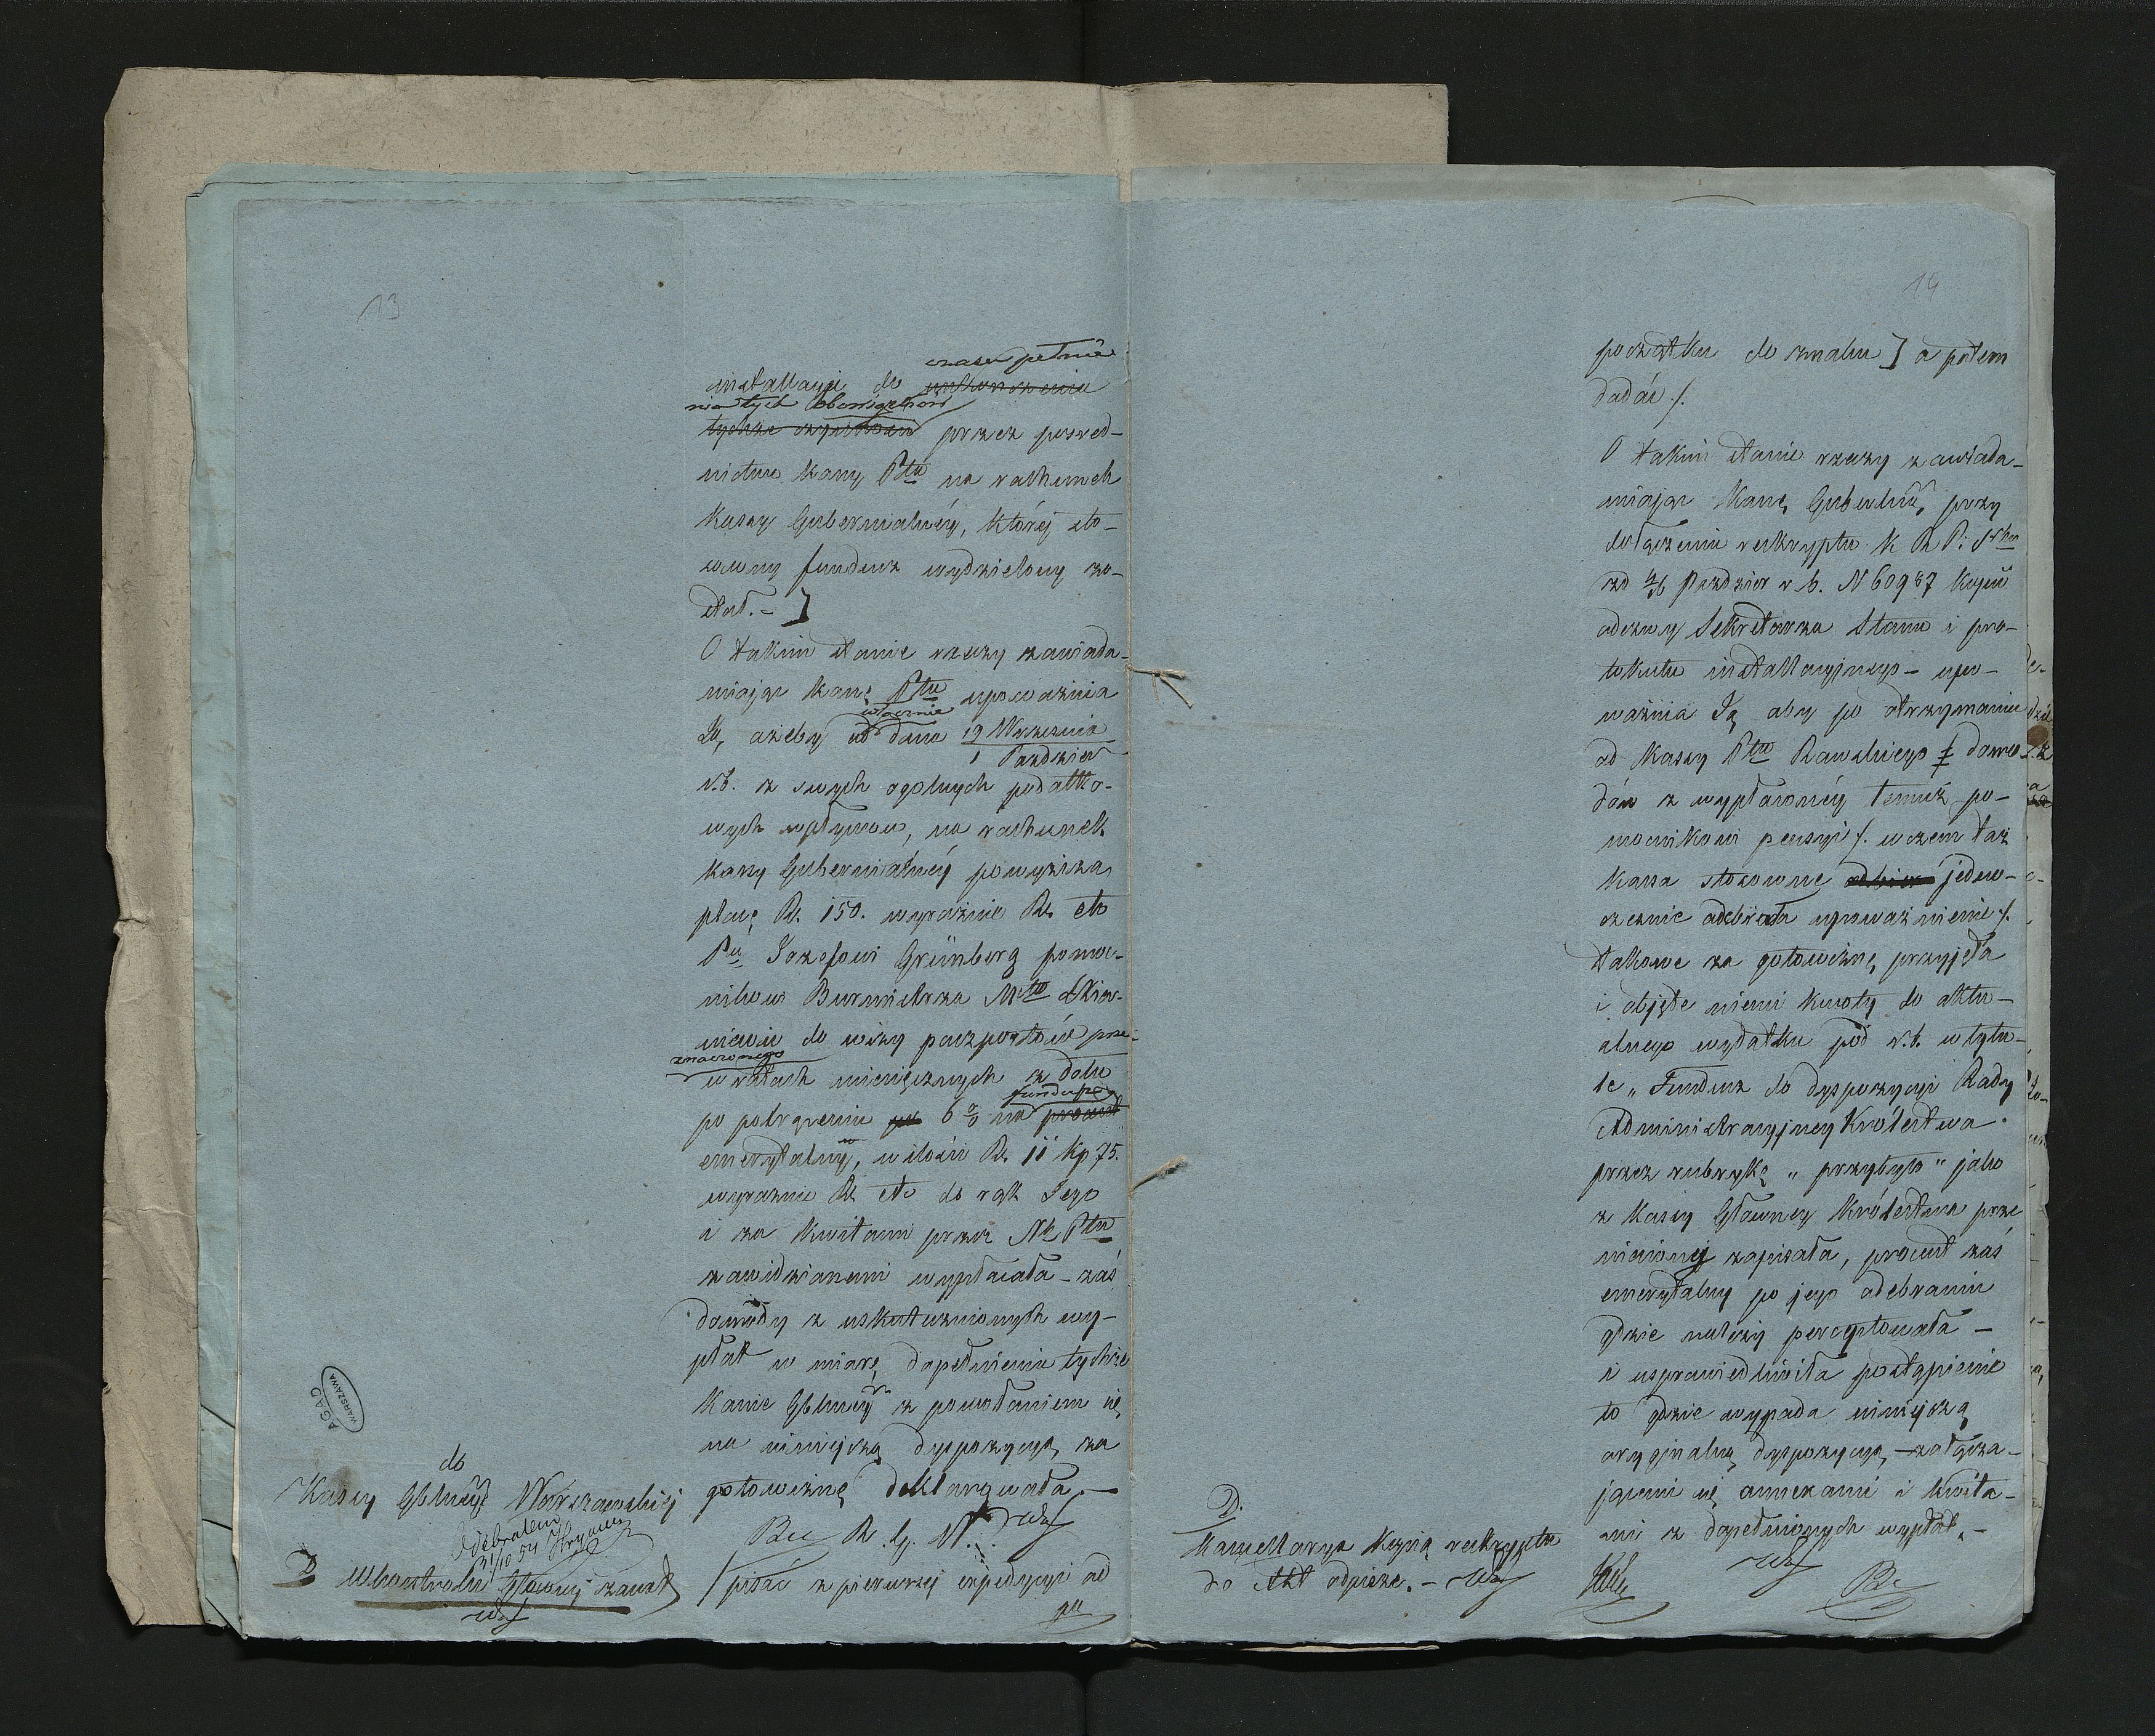 13
czasu pełnie
instalacyi do uskuteczenia
nia tych obowiązków
tychże czynności przez pośred-
nictwo Kassy Ptu na rachunek
Kassy Gubernialnéy, którey sto-
sowny fundusz wydzielony zo-
stał. - ]
O takim stanie rzeczy zawiada-
miając Kassę Ptu upoważnia
Ją, ażeby włącznie od dnia 19 Września
1 Paździer
r.b. z swych ogólnych podatko-
wych wpływów, na rachunek
Kassy Gubernialnéy powyższą
płacę Rs. 150. wyraźnie Rs. sto
Pu Józefowi Grünberg pomoc-
nikowi Burmistrza Mta Skier-
niewic do wizy paszportów prze-
znaczonego
w ratach miesięcznych z dołu
fundusz
po potrąceniu 6 % na procent
emerytalny, w ilości Rs. 11 kp 75.
wyraźnie Rs. etc do rąk Jego
i za kwitami przez Nk Ptu
zawidzianemi wypłacała - zaś
dowody z uskutecznionych wy-
płat w miarę dopełnienia tychże
Kassie Gblney z powołaniem się
na niniejszą dyspozycyą za
gotowiznę deklarowała. -
do
Kassy Gblnéy Warszawskiej
Odebrałem
D Wkontroli Głównéj zapis
/ pisać z pierwszej expedycyi od
14
początku do znaku ] a potem
dodać /.
O takim stanie rzeczy zawiada-
miając Kassę Gubernlną, przy
dołączeniu reskryptu K R P. i Sbu
zd 4/16 Paździer r.b. N 60987 kopii
odezwy Sekretarza Stanu i pro-
tokułu instalacyjnego - upo-
ważnia Ją aby po otrzymaniu
od Kassy Ptu Rawskiego dowo-
dów z wypłaconéy temuż po-
mocnikowi pensyi /. w czem taż
Kassa stosowne jedno-
cześnie odebrała upoważnienie /.
takowe za gotowiznę przyjęła
i objęte niemi kwoty do aktu-
alnego wydatku pod r.b. w tytu-
le „ Fundusz do dyspozycyi Rady
Administracyjney Królestwa
przez rubrykę „ przybyło " jako
z Kassy Głównéy Królestwa prze
niesioney zapisała, procent zaś
emerytalny po jego odebraniu
gdzie należy percyptowała -
i usprawiedliwiła postąpienie
to gdzie wypada niniejszą
oryginalną dyspozycyą, - załącza-
jącemi się annexami i kwita-
mi z dopełnionych wypłat. -
D.
Kancellarya kopią reskryptu
do Akt odpisze. -